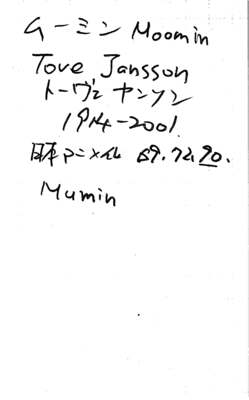 ムーミン Moomin
Tove Jansson
トーヴェ ヤンソン
1914-2001.
アニメ化 69.72.90.
Mumin